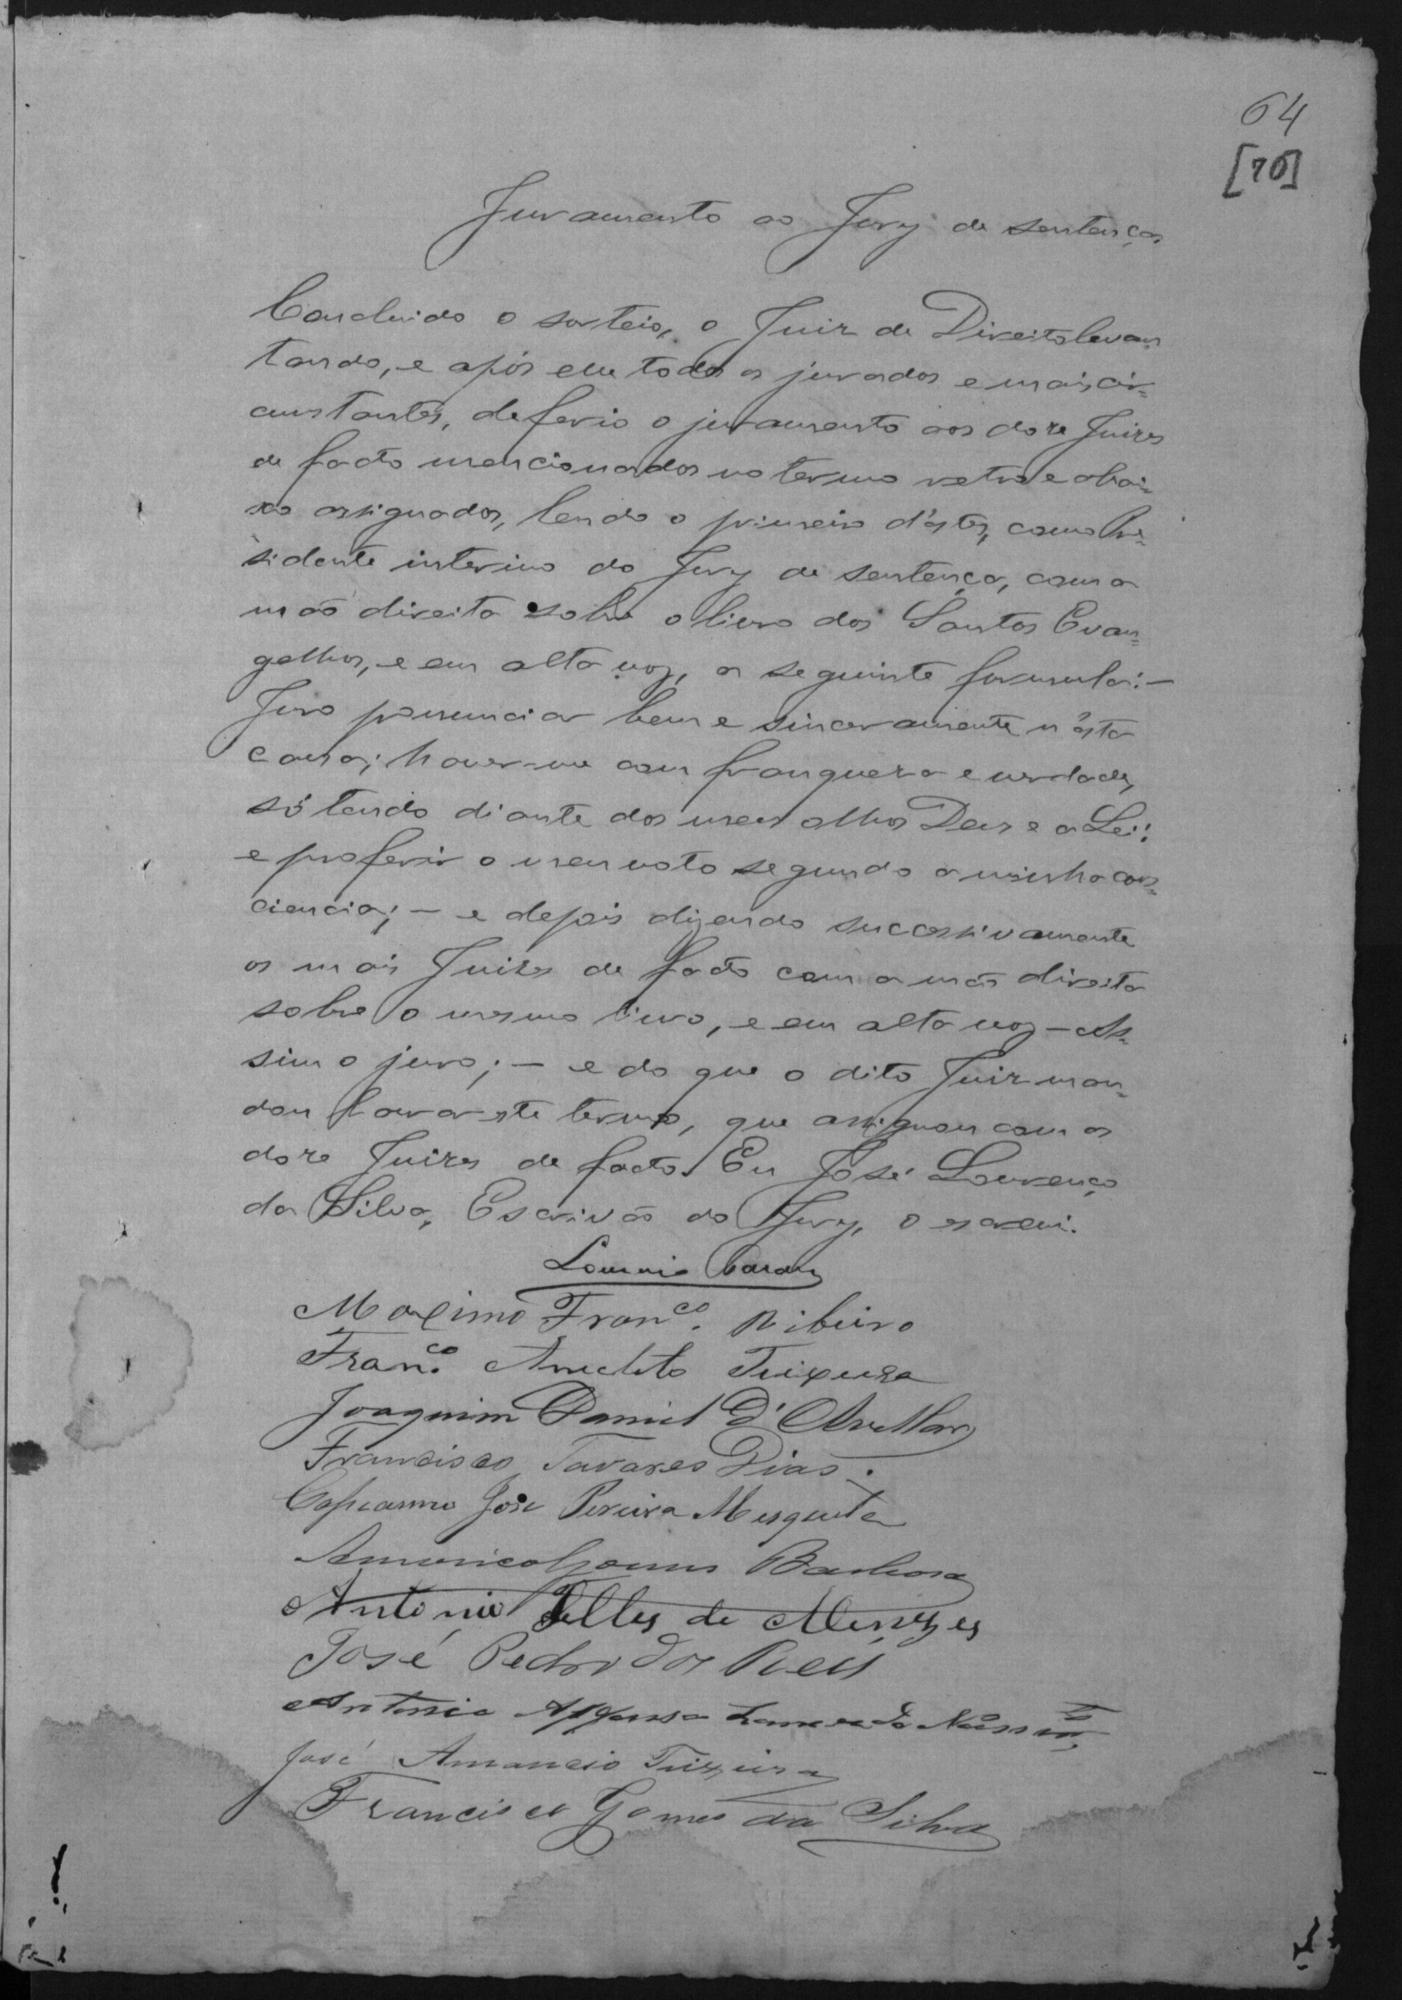 64
[70]
Juramento ao Jury de sentença
Concluido o sorteio, o Juiz de Direito levan-
tando, e após elle todos os jurados e mais cir-
cunstantes, deferio o juramento aos doze Juizes
de facto mencionados no termo retro e abai-
xo assignados, lendo o primeiro d'estes, como Pre-
sidente interino do Jury de sentença, com a
mão direita sobre o livro dos Santos Evan-
gelhos, e em alta voz, a seguinte formula: —
Juro pronunciar bem e sinceramente n'esta
causa; haver-me com franqueza e verdade,
só tendo diante dos meus olhos Deus e a Lei;
e proferir o meu voto segundo a minha cons-
ciencia; — e depois dizendo successivamente
os mais Juizes de facto com a mão direita
sobre o mesmo livro, e em alta voz — As-
sim o juro; — e do que o dito Juiz man-
dou lavrar este termo, que assignou com os
doze Juizes de facto. Eu José Lourenço
da Silva, Escrivão do Jury, o escrevi.
Maximo Fran.co Ribeiro
Fran.co Anacleto Teixeira
Joaquim Daniel d'Avellar
Francisco Tavares Dias.
José Pereira Mesquita
Americo Gomes Barbosa
Antonio Telles de Menezes
José Pedro dos Reis
Antonio Affonso
José Amancio Teixeira
Francisco Gomes da Silva